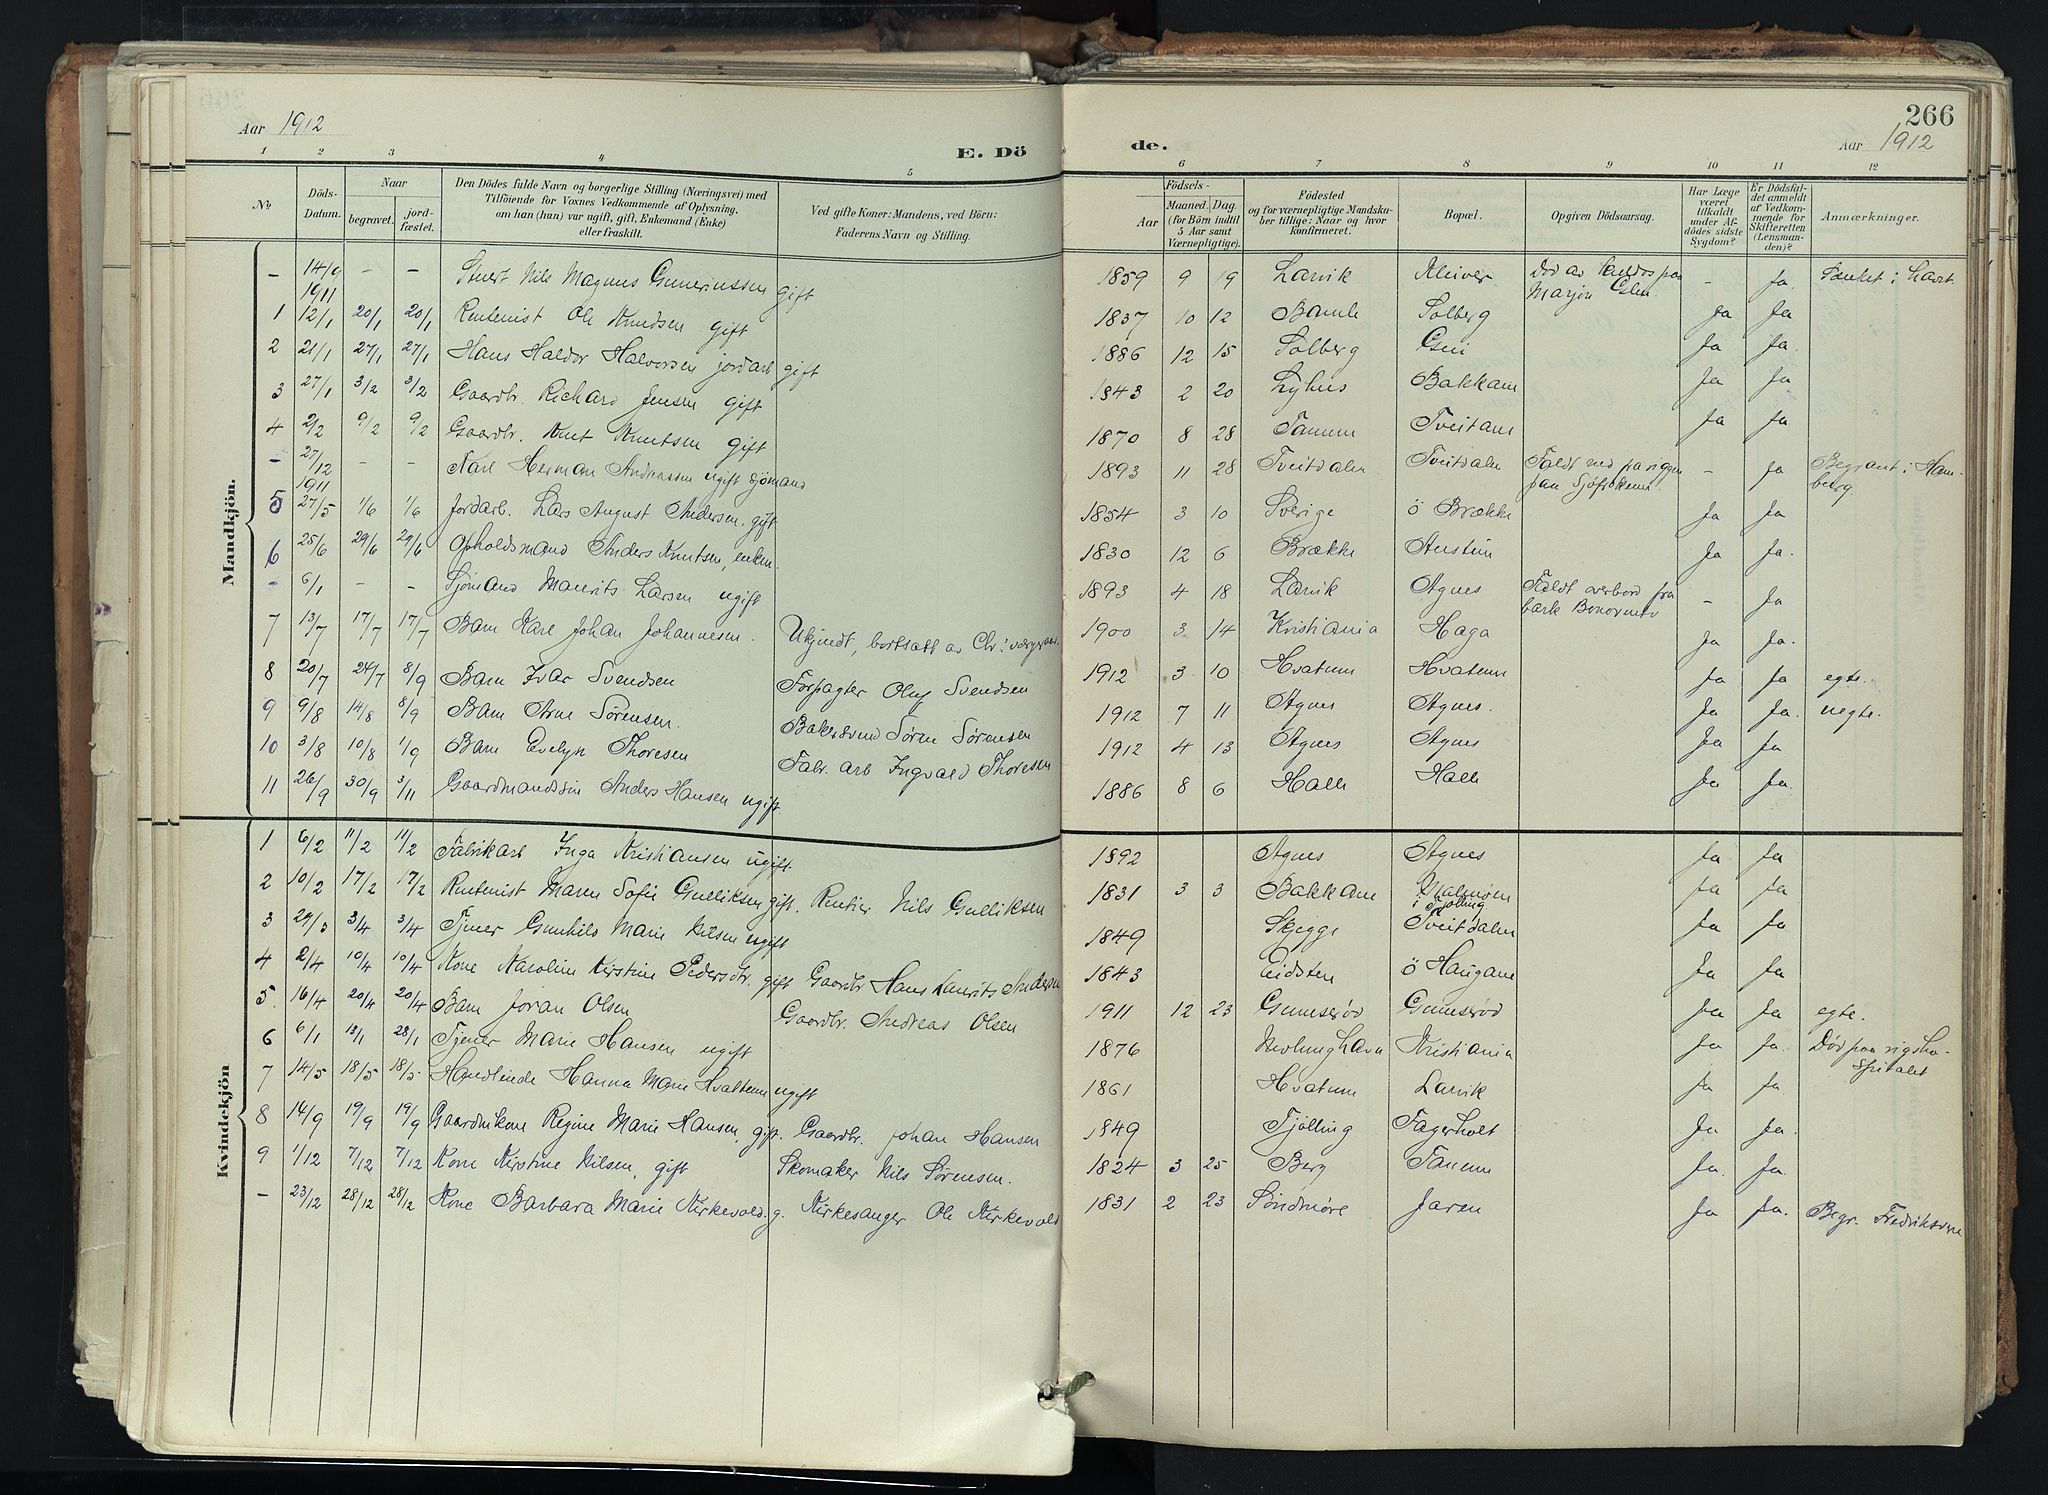 Aar 1912
E. Dö
de.
266
Aar 1912
1 2 3 4 5 6 7 8 9 10 11 12
No.
Döds-Datum.
Naar
begravet.
jordfæstet.
Den Dödes fulde Navn og borgerlige Stilling (Næringsvei) med
Tilföiende for Voxnes Vedkommende af Oplysning,
om han (hun) var ugift, gift, Enkemand (Enke)
eller fraskilt.
Ved gifte Koner: Mandens, ved Börn:
Faderens Navn og Stilling.
Födsels-
Aar
Maaned. Dag
(for Börn indtil
5 Aar samt
Værnepligtige).
Födested
og for værnepligtige Mandskaber tillige: Naar og hvor
konfirmeret.
Bopæl.
Opgiven Dödsaarsag.
Har Læge
været
tilkaldt
under Afdödes sidste
Sygdom?
Er Dödsfaldet anmeldt
af Vedkommende for
Skifteretten
(Lensmanden)?
Anmærkninger.
Mandkjön.
- 14/9 1911 - - Stuert Nils Magnus Gunerinssen gift 1859 9 19 Larvik Kleiver Død av paa - Ja. Sænket i havet.
1 12/1 20/1 20/1 Rentenist Ole Knudsen gift 1837 10 12 Bamle Solberg Ja Ja
2 21/1 27/1 27/1 Hans Haldor Halvorsen jordarb gift 1886 12 15 Solberg Ja Ja.
3 27/1 3/2 3/2 Gaardbr. Richard Jensen gift 1843 2 20 Lyhus Bakkane Ja Ja
4 2/2 9/2 9/2 Gaardbr. Knut Knutsen gift 1870 8 28 Tanum Tveitane Ja Ja
- 27/12 1911 - - Karl Herman Andreassen ugift sjömand 1893 11 28 Tveitdalen Tveitdalen Faldt ned fra riggen paa Sjöfrøkenen. - Ja Begravt i Hamburg.
5 27/5 1/6 1/6 Jordarb. Lars August Andersen, gift 1854 3 10 Sverige ö Brække Ja Ja
6 25/6 29/6 29/6 Opholdsmand Anders Knutsen, enkem. 1830 12 6 Brække Ja Ja.
- 6/1 - - Sjömand Maurits Larsen ugift 1893 4 18 Larvik Agnes Faldt overbord fra bark - Ja
7 13/7 17/7 17/7 Barn Karl Johan Johannesen. Ukjendt, bortsatt av Chr: vergeraad. 1900 3 14 Kristiania Haga Ja Ja.
8 20/7 24/7 8/9 Barn Ivar Svendsen Forpagter Oluf Svendsen 1912 3 10 Hvatum Hvatum Ja Ja egte.
9 9/8 14/8 8/9 Barn Arne Sörensen. Bakersvend Sören Sörensen 1912 7 11 Agnes Agnes. Ja Ja. uegte.
10 3/8 10/8 1/9 Barn Evelyn Thoresen Fabr. arb Ingvald Thoresen 1912 4 13 Agnes Agnes Ja Ja
11 26/9 30/9 3/11 Gaardmandssön Anders Hansen ugift. 1886 8 6 Halle Halle Ja Ja.
Kvindekjön
1 6/2 11/2 11/2 Fabrikarb Inga Kristiansen ugift. 1892 Agnes Agnes Ja Ja
2 10/2 17/2 17/2 Rentenist Maren Sofie Gulliksen gift. Rentier Nils Gulliksen 1831 3 3 Bakkane Malmöen i Tjölling Ja Ja
3 29/3 3/4 3/4 Tjener Gunhild Marie Nilsen ugift 1849 Skjegge Tveitdalen Ja Ja
4 2/4 10/4 10/4 Kone Karoline Kirstine Pedersdtr. gift Gaardbr Hans Laurits Andersen 1843 Eidsten ö Haugane Ja Ja
5. 16/4 20/4 20/4 Barn Joran Olsen Gaardbr. Andreas Olsen 1911 12 23 Gunneröd Gunneröd Ja Ja egte.
6 6/1 13/1 28/1 Tjener Marie Hansen ugift 1876 Nevlunghavn Kristiania Ja Ja. Död paa rigshospitalet
7 14/5 18/5 18/5 Handlende Hanna Marie Hvattum ugift 1861 Hvatum Larvik Ja Ja.
8 14/9 19/9 19/9 Gaardmkone Regine Marie Hansen, gift. Gaardbr. Johan Hansen 1849 Tjölling Fagerholt Ja Ja.
9 1/12 7/12 7/12 Kone Kirstine Nilsen, gift Skomaker Nils Sörensen. 1824 3 25 Berg Tanum Ja. Ja.
- 23/12 28/12 28/12 Kone Barbara Marie Kirkevold. g. Kirkesanger Ole Kirkevold 1831 2 23 Söndmöre Jaren Ja Ja. Begr. Fredriksværn